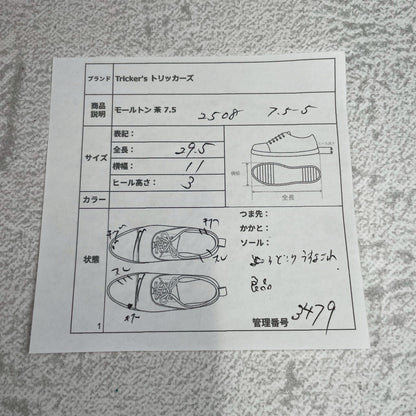 ブランド Tricker's トリッカーズ
商品説明 モールトン 茶 7.5 2508 7.5-5
サイズ
表記：
全長： 29.5
横幅： 11
ヒール高さ： 3
横幅
全長
カラー
状態
キズ
キズ
スレ
スレ
つま先：
かかと：
ソール：
良品
1
管理番号 3479